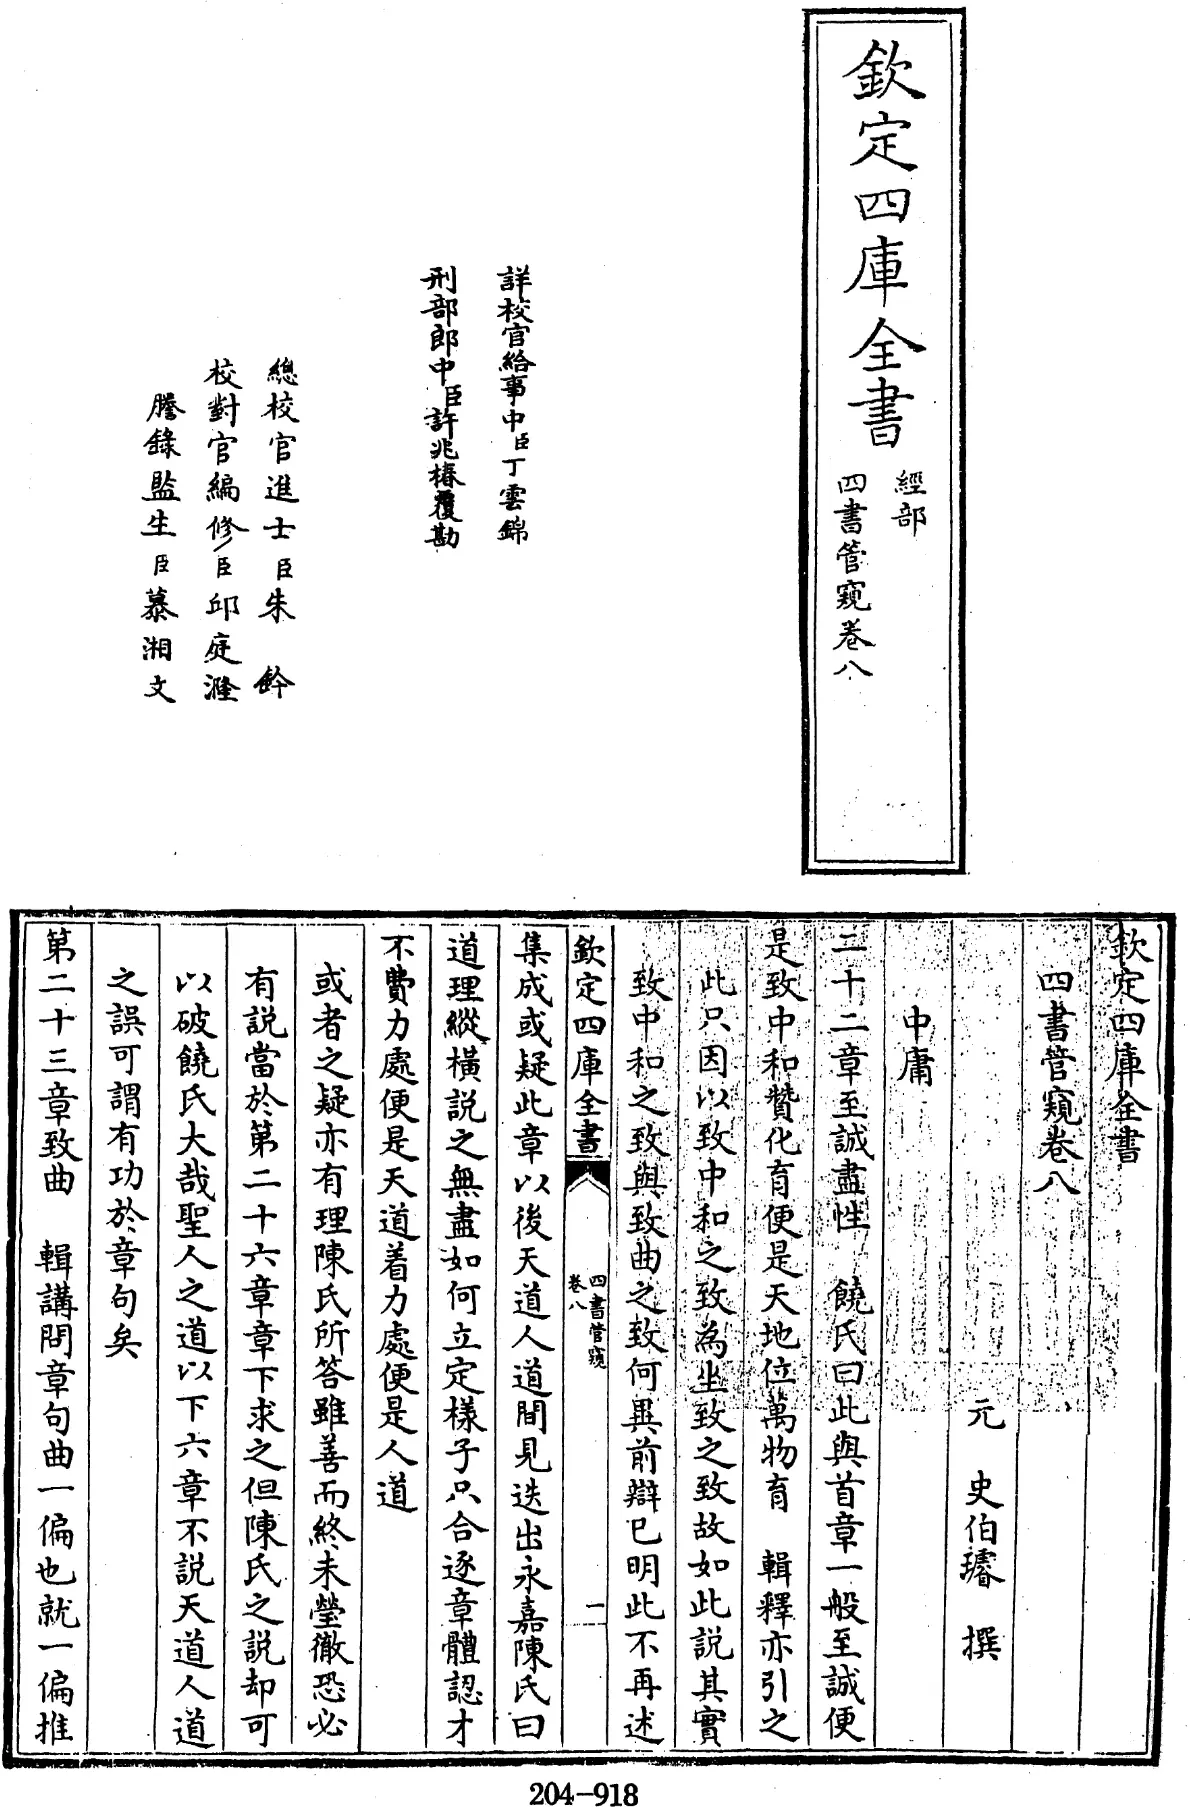 欽定四庫全書
經部
四書管窺卷八
詳校官給事中臣丁雲錦
刑部郎中臣許兆椿覆勘
總校官進士臣朱鈐
校對官編修臣邱庭漋
謄錄監生臣慕湘文
欽定四庫全書
四書管窺卷八
元 史伯璿 撰
中庸
二十二章至誠盡性 饒氏曰此與首章一般至誠便
是致中和贊化育便是天地位萬物育 輯釋亦引之
此只因以致中和之致為坐致之致故如此說其實
致中和之致與致曲之致何異前辯已明此不再述
欽定四庫全書
四書管窺
卷八
一
集成或疑此章以後天道人道間見迭出永嘉陳氏曰
道理縱橫說之無盡如何立定樣子只合逐章體認才
不費力處便是天道着力處便是人道
或者之疑亦有理陳氏所答雖善而終未瑩徹恐必
有說當於第二十六章章下求之但陳氏之說却可
以破饒氏大哉聖人之道以下六章不說天道人道
之誤可謂有功於章句矣
第二十三章致曲 輯講問章句曲一偏也就一偏推
204-918